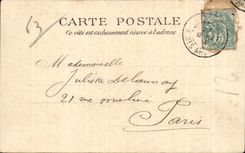 13
CARTE POSTALE
Ce côté est exclusivement réservé à l'adresse
Mademoiselle
Juliette Delaunay
21 rue
Paris